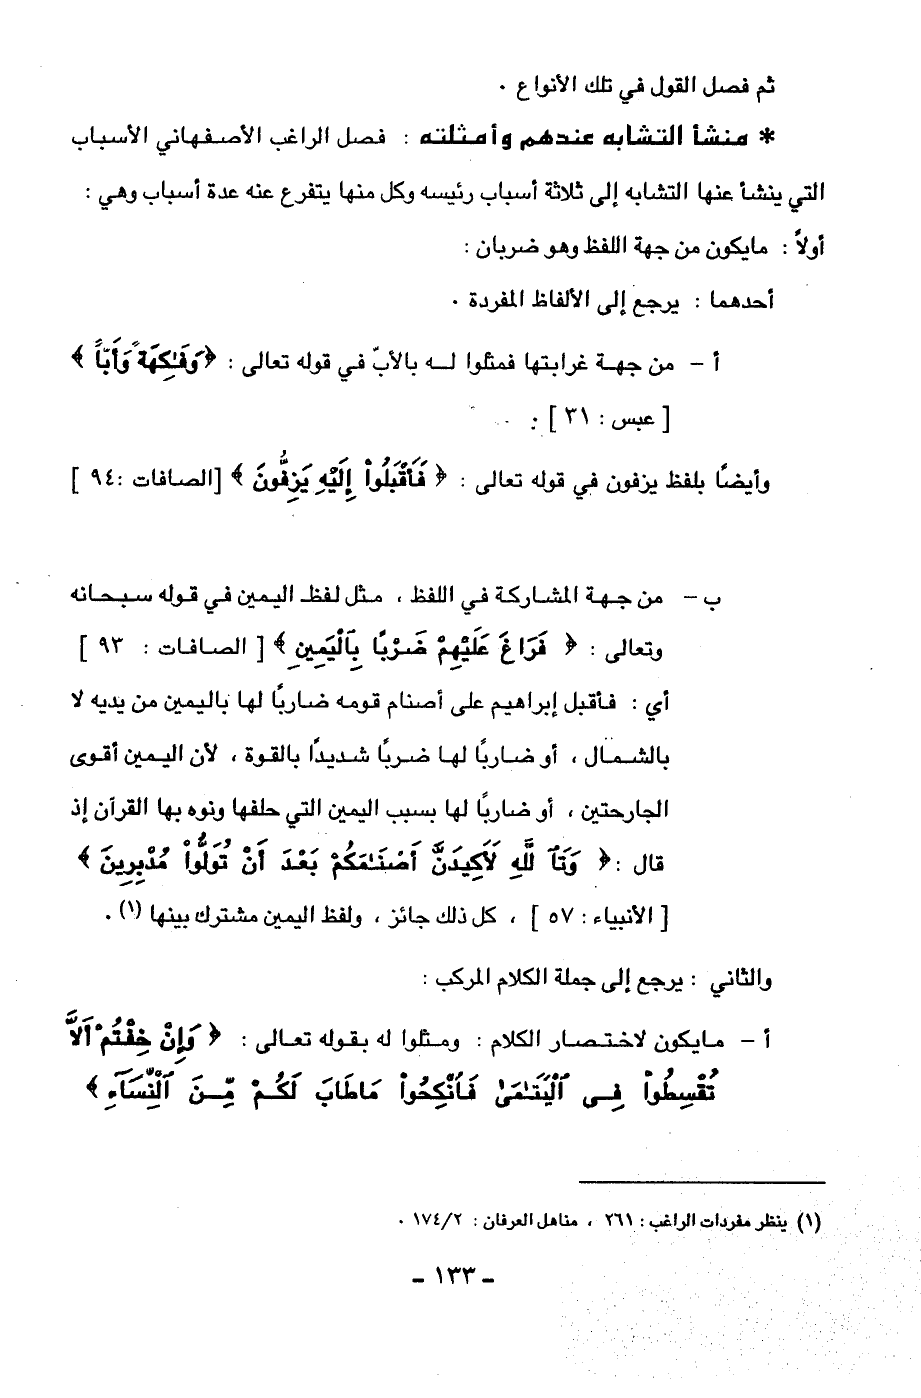 ثم فصل القول في تلك الأنواع .
* منشأ التشابه عندهم وأمثلته : فصل الراغب الأصفهاني الأسباب
التي ينشأ عنها التشابه إلى ثلاثة أسباب رئيسه وكل منها يتفرع عنه عدة أسباب وهي :
أولاً : مايكون من جهة اللفظ وهو ضربان :
أحدهما : يرجع إلى الألفاظ المفردة .
أ - من جهة غرابتها فمثلوا له بالأبّ في قوله تعالى : ﴿ وَفَٰكِهَةً وَأَبًّا ﴾
[ عبس : ٣١ ] .
وأيضًا بلفظ يزفون في قوله تعالى : ﴿ فَأَقْبَلُوٓا۟ إِلَيْهِ يَزِفُّونَ ﴾ [الصافات :٩٤ ]
ب - من جهة المشاركة في اللفظ ، مثل لفظ اليمين في قوله سبحانه
وتعالى : ﴿ فَرَاغَ عَلَيْهِمْ ضَرْبًا بِالْيَمِينِ ﴾ [ الصافات : ٩٣ ]
أي : فأقبل إبراهيم على أصنام قومه ضاربًا لها باليمين من يديه لا
بالشمال ، أو ضاربًا لها ضربًا شديدًا بالقوة ، لأن اليمين أقوى
الجارحتين ، أو ضاربًا لها بسبب اليمين التي حلفها ونوه بها القرآن إذ
قال :﴿ وَتَٱللَّهِ لَأَكِيدَنَّ أَصْنَٰمَكُمْ بَعْدَ أَنْ تُوَلُّوا۟ مُدْبِرِينَ ﴾
[ الأنبياء : ٥٧ ] ، كل ذلك جائز ، ولفظ اليمين مشترك بينها (١) .
والثاني : يرجع إلى جملة الكلام المركب :
أ - مايكون لاختصار الكلام : ومثلوا له بقوله تعالى : ﴿ وَإِنْ خِفْتُمْ أَلَّا
تُقْسِطُوا۟ فِى ٱلْيَتَٰمَىٰ فَٱنْكِحُوا۟ مَاطَابَ لَكُمْ مِّنَ ٱلنِّسَآءِ ﴾
(١) ينظر مفردات الراغب : ٢٦١ ، مناهل العرفان : ١٧٤/٢ .
- ١٣٣ -